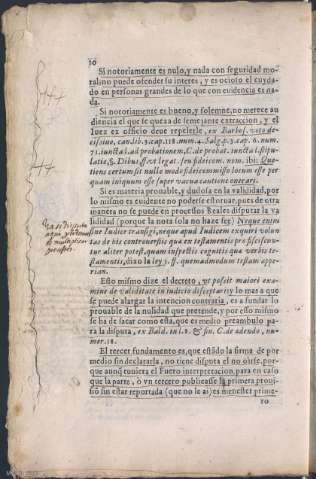 10
Si notoriamente es nulo, y nada con seguridad mo-
ral no puede ofender su interes, y es ocioso el cuyda-
do en personas grandes de lo que con euidencia es na-
da.
Si notoriamente es bueno, y solemne, no merece au
diencia el que se quexa de semejante extraccion, y el
Iuez ex officio deue repelerle, ex Barbos. voto de-
cisiuo, canonic. 3. cap. 118. num. 4. Salg. p. 3. cap. 6. num.
71. iuncta l. ad probationem, C. de probat. iuncta l. stipu-
latio, §. Dibus ff. vt legat. seu fideicom. nom. ibi: Quo-
tiens certum sit nullo modo fideicommisso locum esse per
quam iniquum esse super vacua cautione onerari.
Si es materia prouable, y dudosa en la valididad, por
lo mismo es euidente no poderse estoruar, pues de otra
manera no se puede en processos Reales disputar la va
lididad (porque la nota solo no haze fee) Neque enim
sine Iudice transigi, neque apud Iudicem exquiri volun
tas de his controuersijs qua ex testamentis proficiscun-
tur aliter potest, quam inspectis cognitis qua verbis te-
stamentis, dixo la ley 3. ff. quemadmodum testam. ape-
rian.
Esto mismo dize el decreto, vt possit maiori exami-
ne de validitate in iudicio disceptari: y lo mas a que
se puede alargar la intencion contraria, es a fundar lo
prouable de la nulidad que pretende, y por esso mismo
se ha de sacar como està, que es medio preambulo pa-
ra la disputa, ex Bald. in l. 2. C. sin. C. de edendo, nu-
mer. 18.
El tercer fundamento es, que estado la firma de por
medio sin declararla, no tiene disputa el no oirse, por-
que aunq̃ tuuiera el Fuero interpretacion, para en caso
que la parte, ò vn tercero publicasse la primera proui-
sio sin estar reportada (que no le ai) es menester prime-
ro